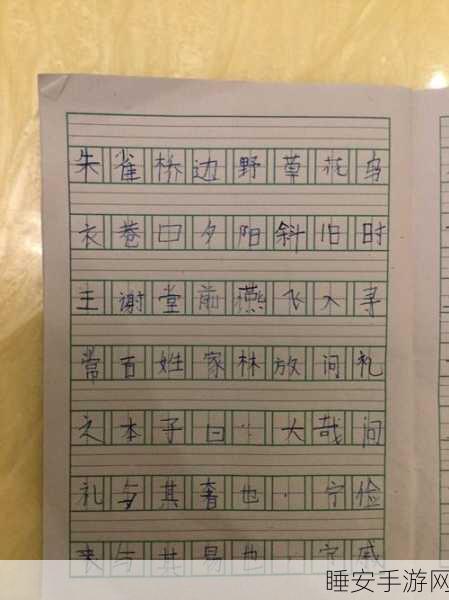 朱雀桥边野草花乌
衣巷口夕阳斜旧时
王谢堂前燕飞入寻
常百姓家林放问礼
之本子曰:大哉问
礼与其奢也·宁俭
丧与其易也·宁戚
睡安手游网